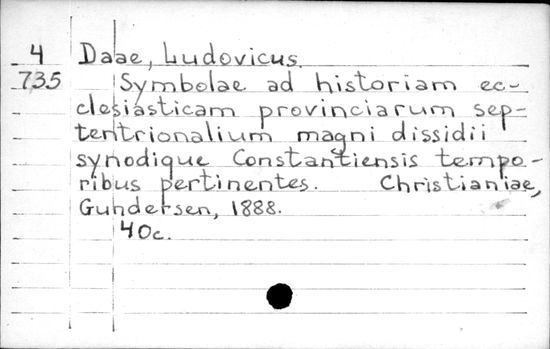 4 Daae, Ludovicus.
735 Symbolae ad historiam ec-
clesiasticam provinciarum sep-
tentrionalium magni dissidii
synodique Constantiensis tempo-
ribus pertinentes. Christianiae,
Gundersen, 1888.
40c.